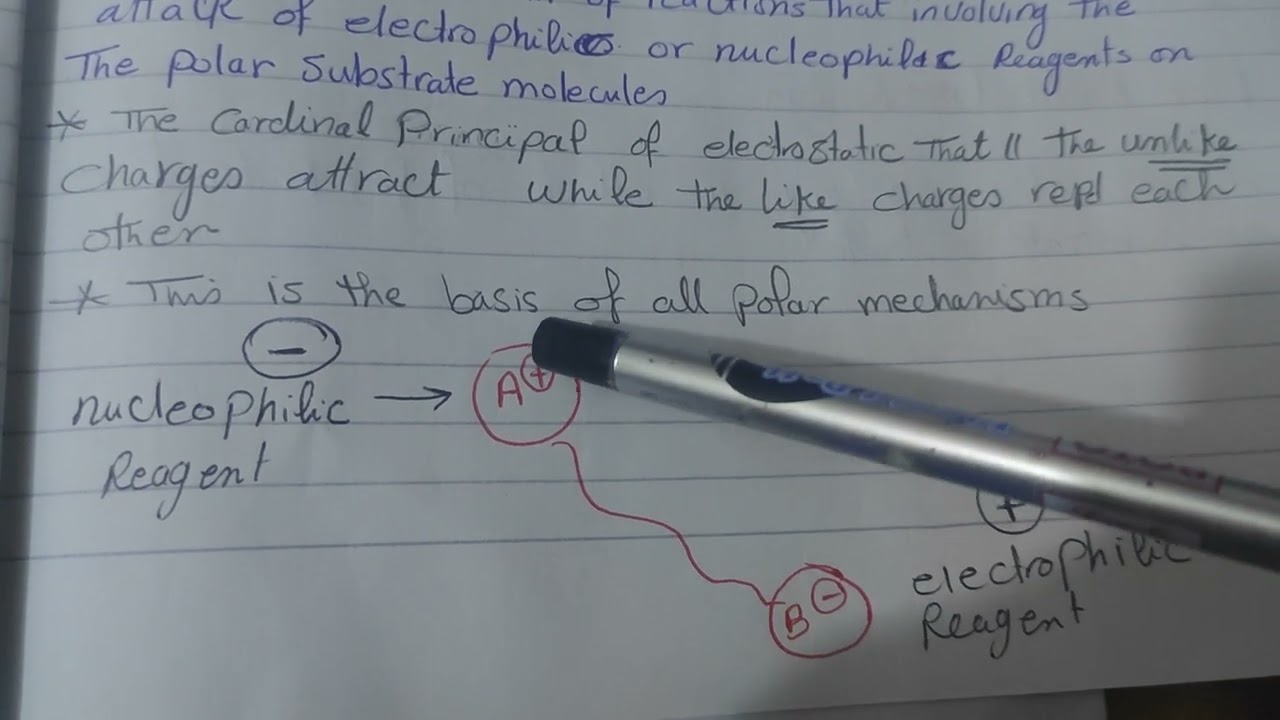 attack of electrophilics or nucleophilic Reagents on
reactions that involving the
The polar Substrate molecules
* The Cardinal Principal of electrostatic that " the unlike
charges attract while the like charges repel each
other
* This is the basis of all polar mechanisms
−
nucleophilic → A +
Reagent
+
electrophilic
B − Reagent